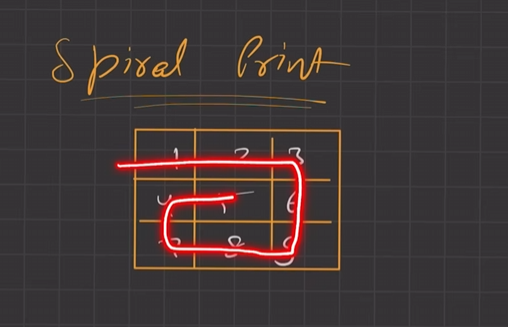 Spiral Print
1 2 3
4 5 6
7 8 9